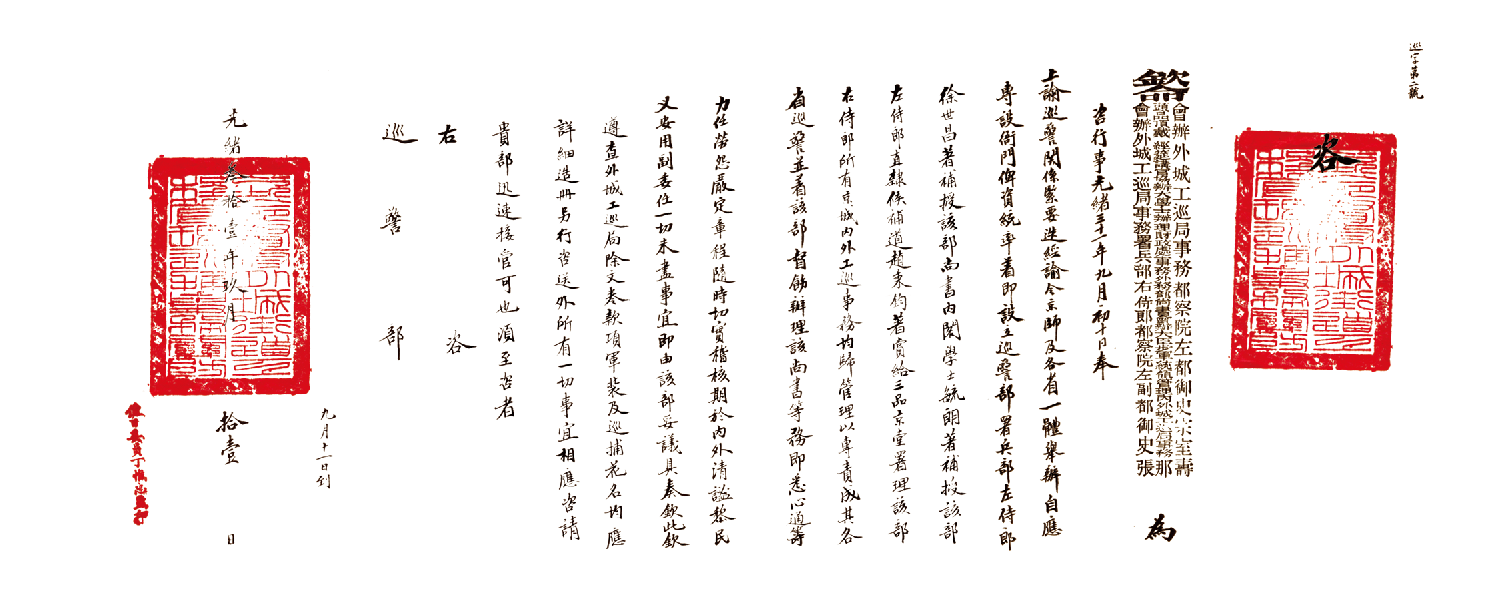 巡字第一號
咨
欽命
會辦外城工巡局事務都察院左都御史宗室壽
那
會辦外城工巡局事務署兵部右侍郎都察院左副都御史張
為
咨行事光緒三十一年九月初十日奉
上諭巡警關係緊要迭經諭令京師及各省一體舉辦自應
專設衙門俾資統率著即設立巡警部署兵部左侍郎
徐世昌著補授該部尚書內閣學士毓朗著補授該部
左侍郎直隸候補道趙秉鈞著賞給三品京堂署理該部
右侍郎所有京城內外工巡事務均歸管理以專責成其各
省巡警並著該部督飭辦理該尚書等務即悉心通籌
力任勞怨嚴定章程隨時切實稽核期於內外清謐黎民
又安用副委任一切未盡事宜即由該部妥議具奏欽此欽
遵查外城工巡局除文卷款項軍裝及巡捕花名均應
詳細造冊另行咨送外所有一切事宜相應咨請
貴部迅速接管可也須至咨者
右 咨
巡警部
九月十一日到
光緒叁拾壹年玖月拾壹日